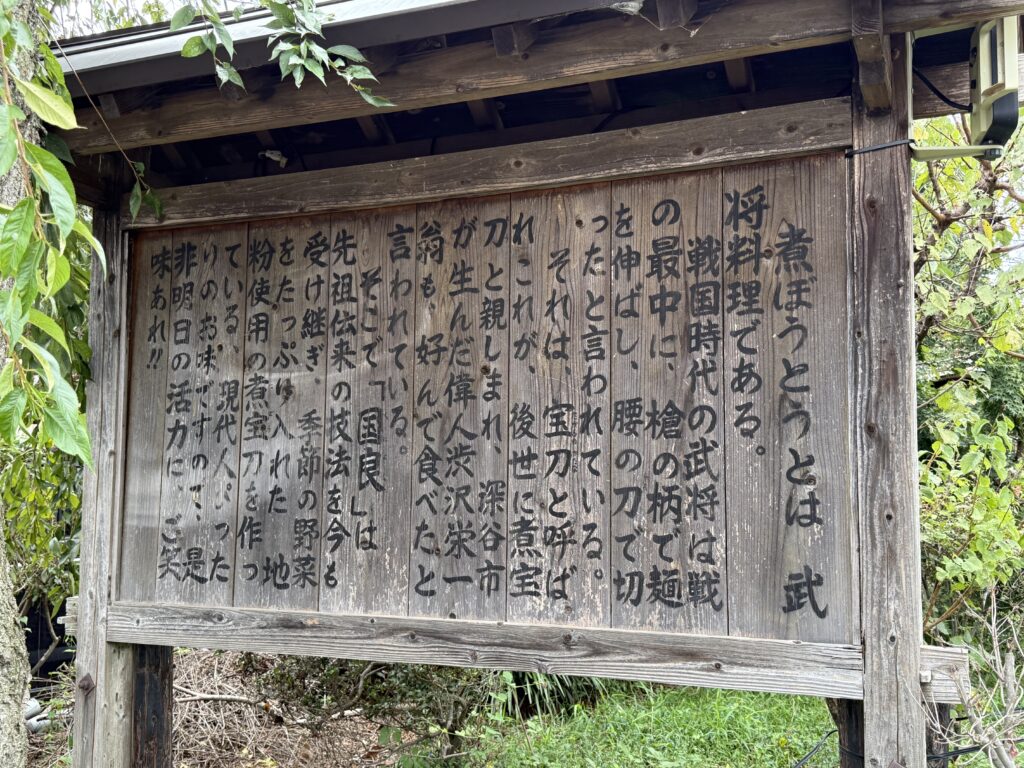 煮ぼうとうとは 武
将料理である。
戦国時代の武将は戦
の最中に、槍の柄で麺
を伸ばし、腰の刀で切
ったと言われている。
それは、宝刀と呼ば
れこれが、後世に煮宝
刀と親しまれ、深谷市
が生んだ偉人渋沢栄一
翁も 好んで食べたと
言われている。
そこで「国良」は
先祖伝来の技法を今も
受け継ぎ、季節の野菜
をたっぷり入れた 地
粉使用の煮宝刀を作っ
ている、現代人ぴった
りのお味ですので、是
非明日の活力に、ご笑
味あれ!!